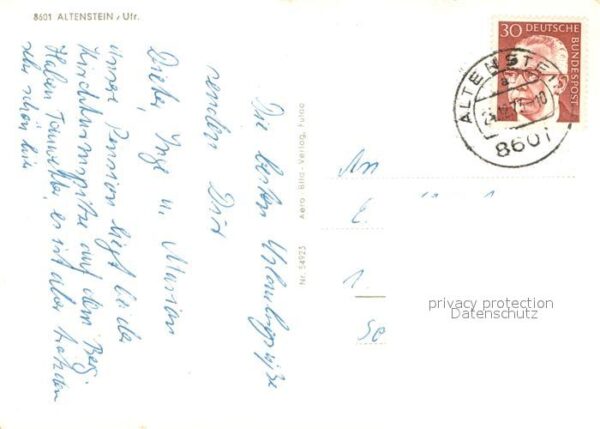 8601 ALTENSTEIN / Ufr.
Die besten Urlaubsgrüße
senden Dir
Dieter, Inge u. Marion
unsere Pension liegt bei der
Kirchturmspitze auf dem Berg.
Haben , es ist aber trotzdem
sehr schön hier
Aero-Bild-Verlag, Fulda
Nr. 54923
30
DEUTSCHE
BUNDESPOST
ALTENSTEIN
a
8601
An
privacy protection
Datenschutz